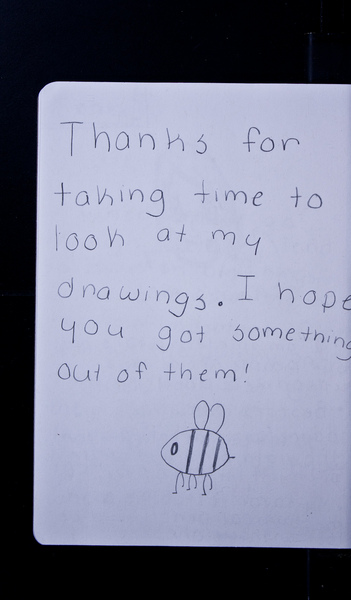 Thanks for
taking time to
look at my
drawings. I hope
you got something
out of them!